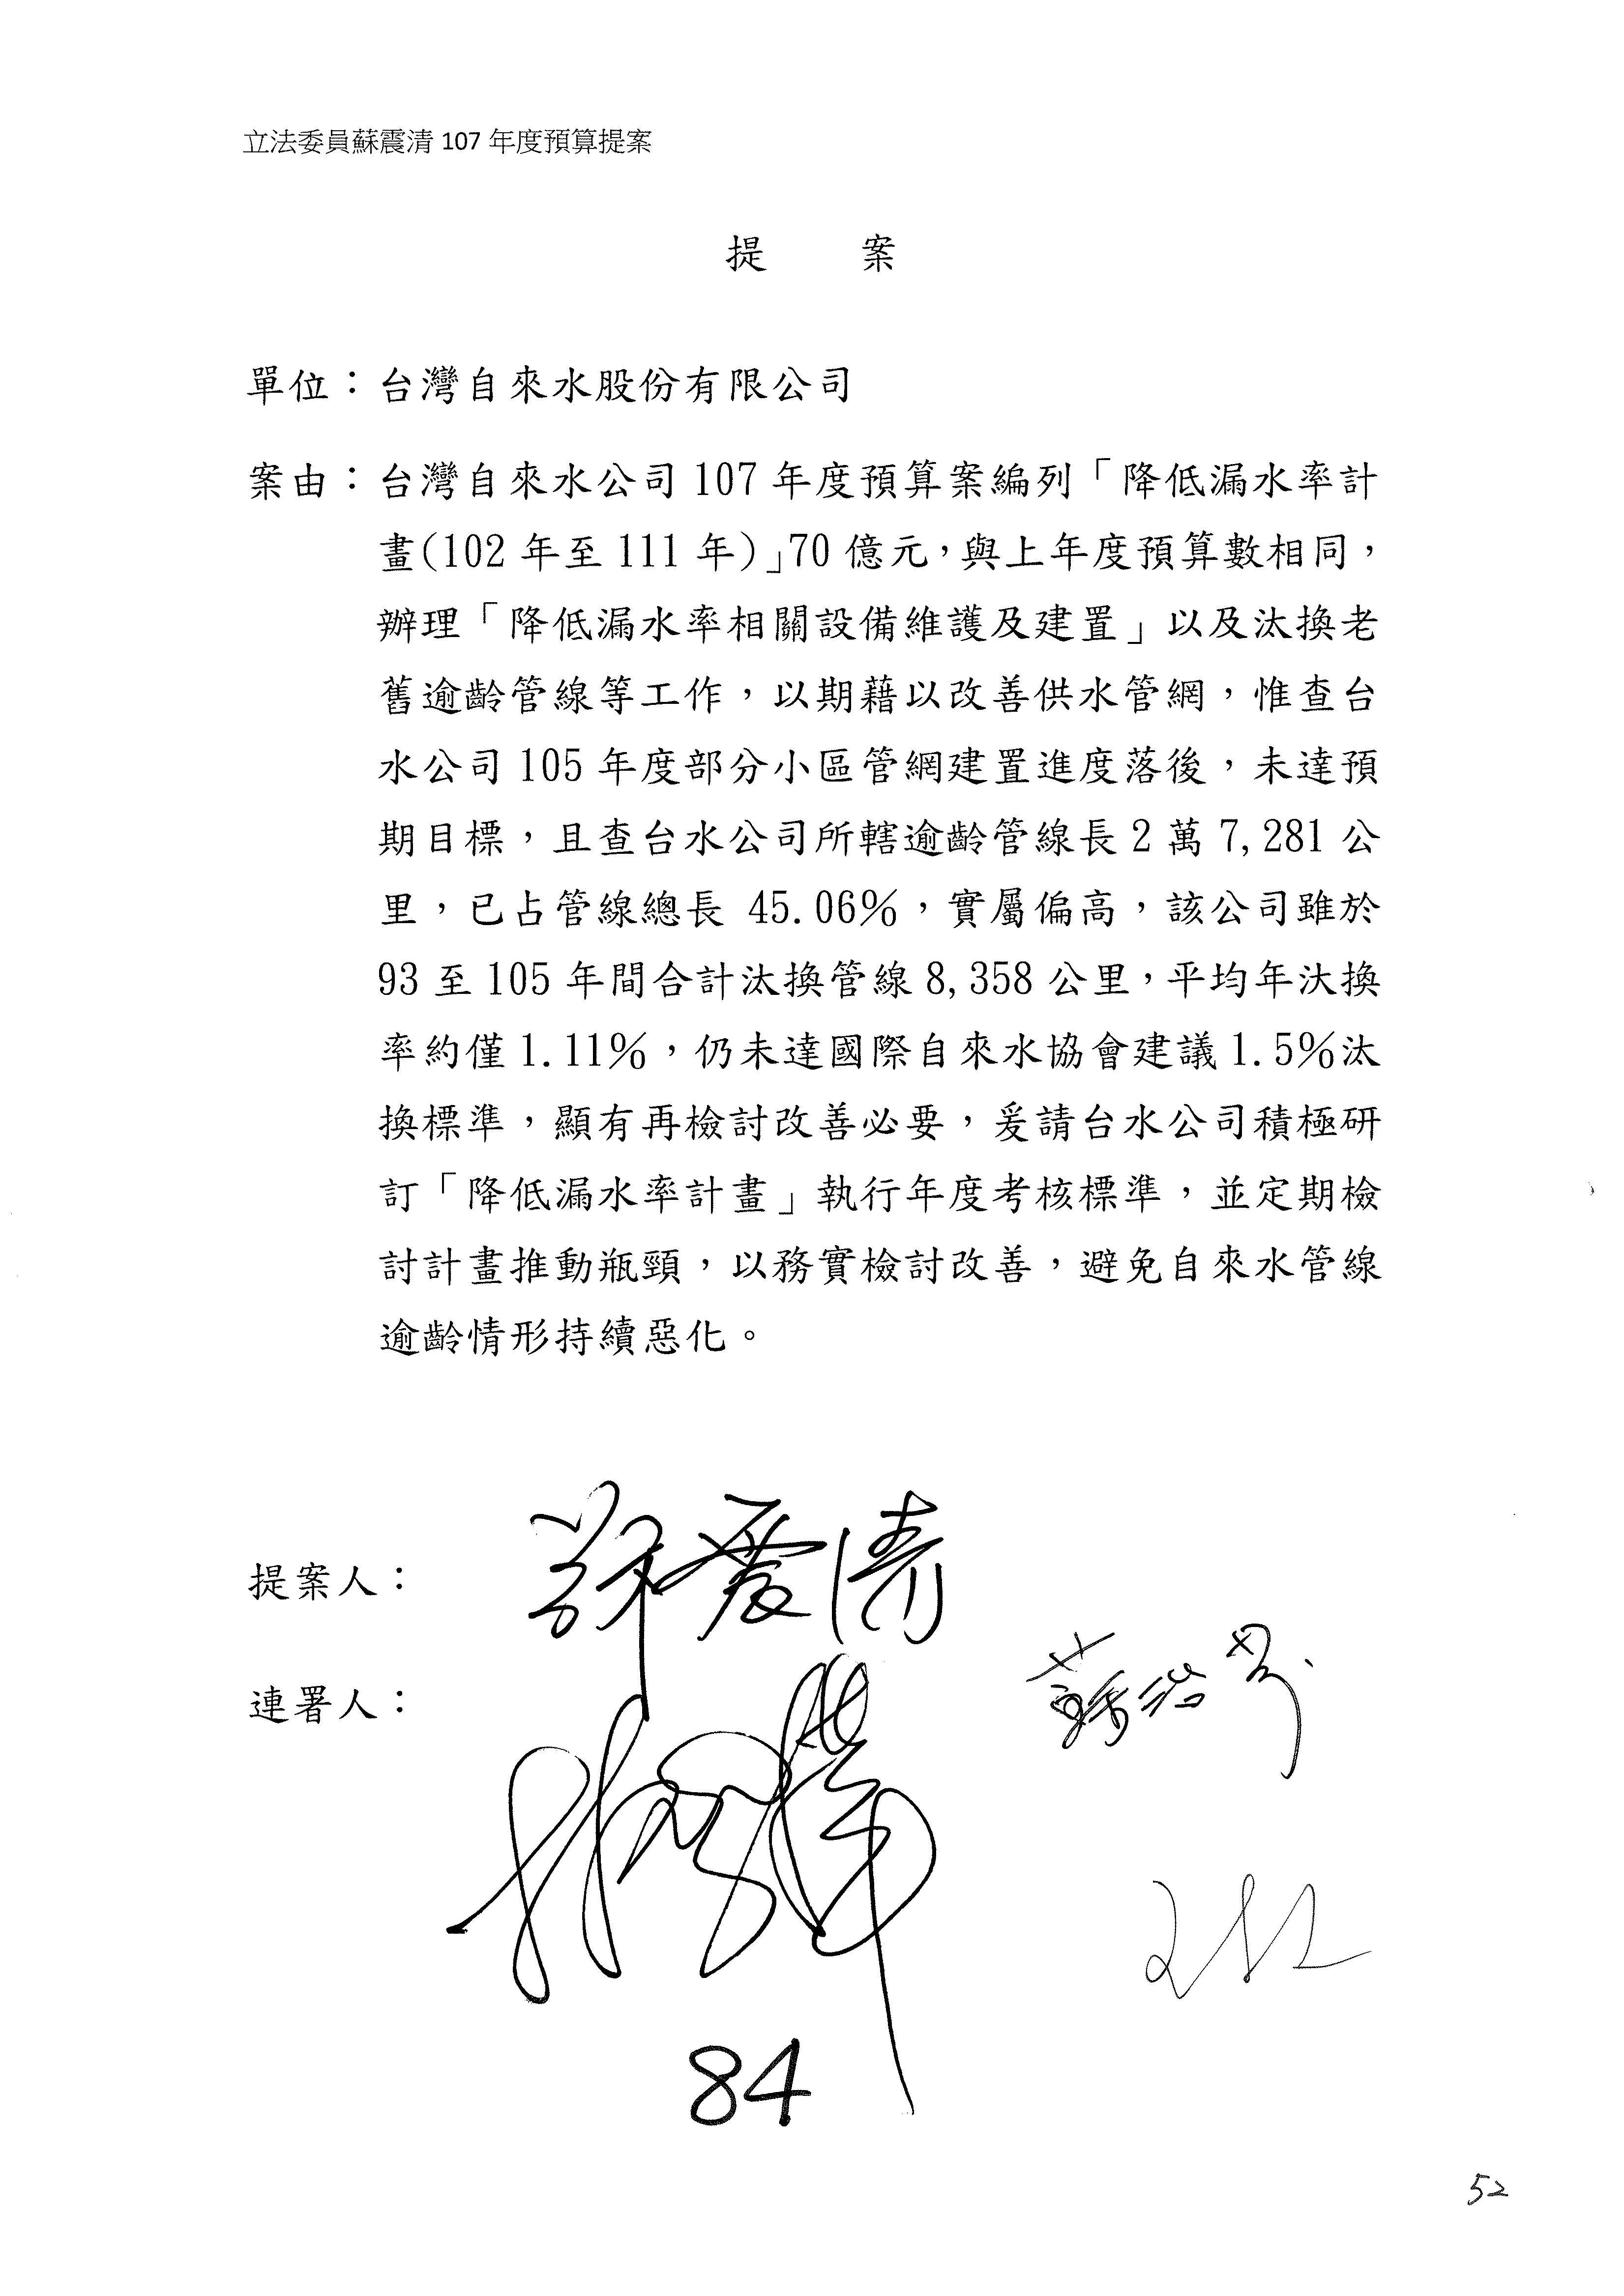 立法委員蘇震清 107 年度預算提案
提 案
單位：台灣自來水股份有限公司
案由：台灣自來水公司 107 年度預算案編列「降低漏水率計
畫(102 年至 111 年)」70 億元，與上年度預算數相同，
辦理「降低漏水率相關設備維護及建置」以及汰換老
舊逾齡管線等工作，以期藉以改善供水管網，惟查台
水公司 105 年度部分小區管網建置進度落後，未達預
期目標，且查台水公司所轄逾齡管線長 2 萬 7,281 公
里，已占管線總長 45.06%，實屬偏高，該公司雖於
93 至 105 年間合計汰換管線 8,358 公里，平均年汰換
率約僅 1.11%，仍未達國際自來水協會建議 1.5%汰
換標準，顯有再檢討改善必要，爰請台水公司積極研
訂「降低漏水率計畫」執行年度考核標準，並定期檢
討計畫推動瓶頸，以務實檢討改善，避免自來水管線
逾齡情形持續惡化。
提案人：蘇震清
連署人：
蘇治芬
84
52